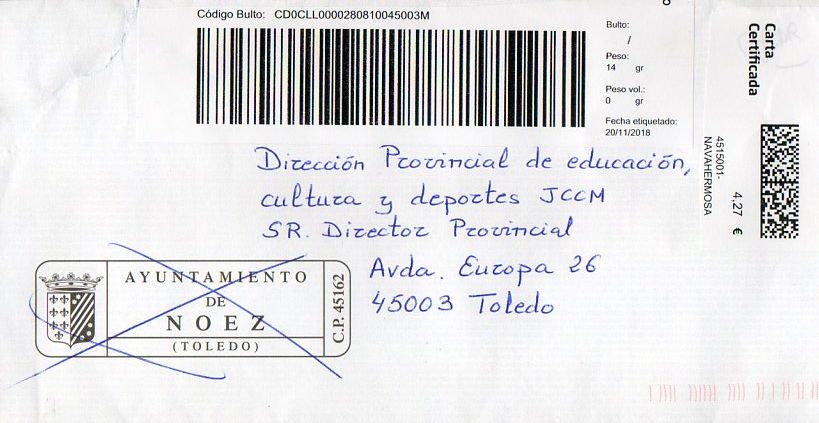 Código Bulto: CD0CLL0000280810045003M
Bulto:
/
Peso:
14 gr
Peso vol.:
0 gr
Fecha etiquetado:
20/11/2018
Carta
Certificada
4515001-
NAVAHERMOSA
4,27 €
Dirección Provincial de educación,
cultura y deportes JCCM
SR. Director Provincial
Avda. Europa 26
45003 Toledo
AYUNTAMIENTO
DE
NOEZ
(TOLEDO)
C.P. 45162